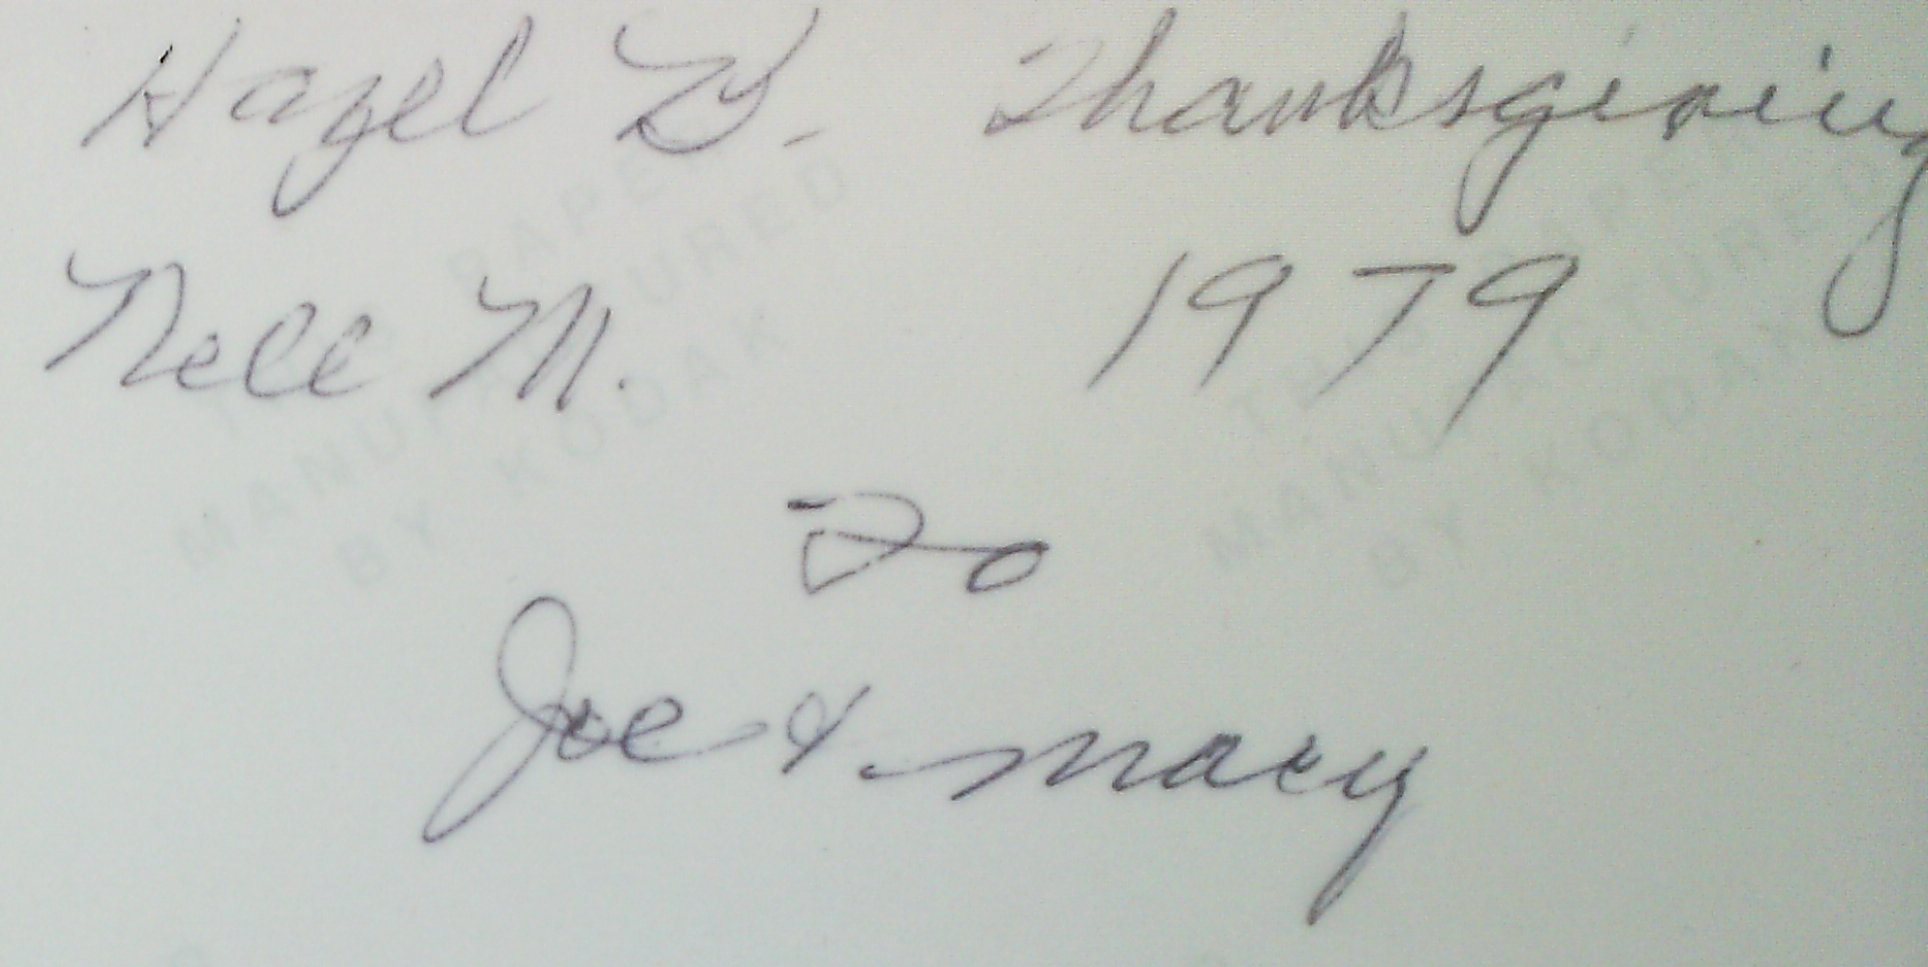 Hazel B. Thanksgiving
Nell M. 1979
To
Joe & Mary
THIS PAPER
MANUFACTURED
BY KODAK
THIS PAPER
MANUFACTURED
BY KODAK